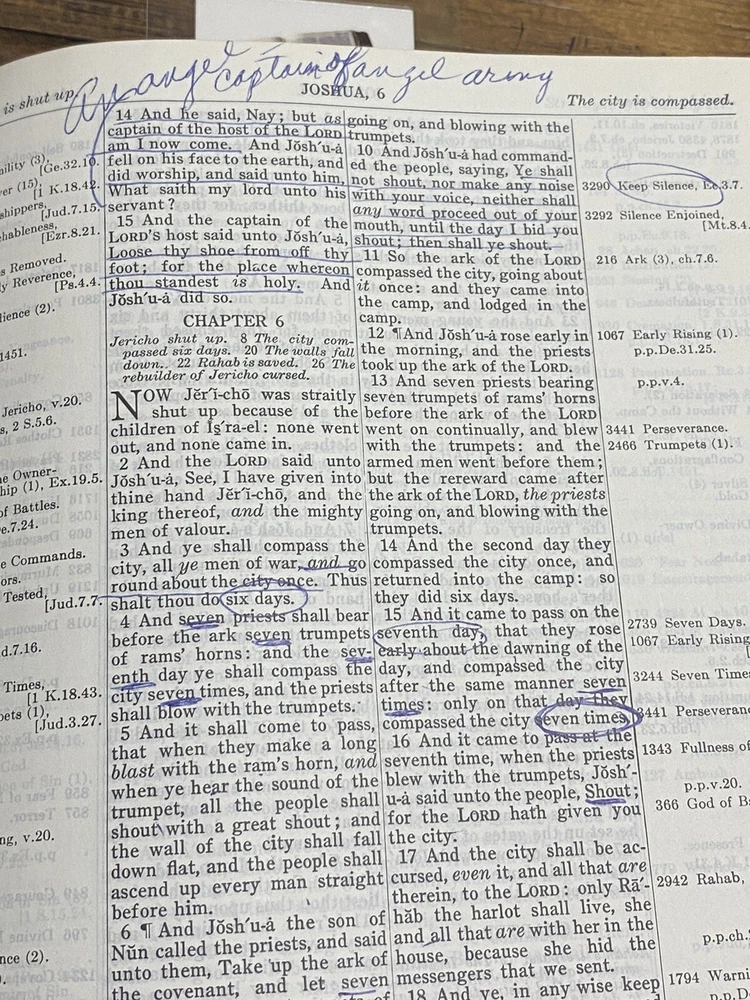 An angel captain of angel army
is shut up
JOSHUA, 6
The city is compassed.
nility (3),
[Ge.32.10.
er (15),
[1 K.18.42.
shippers,
[Jud.7.15.
hableness,
[Ezr.8.21.
s Removed.
y Reverence,
[Ps.4.4.
lience (2).
1451.
Jericho, v.20.
s, 2 S.5.6.
e Owner-
hip (1), Ex.19.5.
of Battles.
e.7.24.
e Commands.
ors.
Tested,
[Jud.7.7.
d.7.16.
Times,
[1 K.18.43.
pets (1),
[Jud.3.27.
ng, v.20.
nce (2).
14 And he said, Nay; but as
captain of the host of the LORD
am I now come. And Jŏsh′u-ȧ
fell on his face to the earth, and
did worship, and said unto him,
What saith my lord unto his
servant?
15 And the captain of the
LORD'S host said unto Jŏsh′u-ȧ,
Loose thy shoe from off thy
foot; for the place whereon
thou standest is holy. And
Jŏsh′u-ȧ did so.
CHAPTER 6
Jericho shut up. 8 The city com-
passed six days. 20 The walls fall
down. 22 Rahab is saved. 26 The
rebuilder of Jericho cursed.
NOW Jĕr′ĭ-chō was straitly
shut up because of the
children of Ĭş′ra-el: none went
out, and none came in.
2 And the LORD said unto
Jŏsh′u-ȧ, See, I have given into
thine hand Jĕr′ĭ-chō, and the
king thereof, and the mighty
men of valour.
3 And ye shall compass the
city, all ye men of war, and go
round about the city once. Thus
shalt thou do six days.
4 And seven priests shall bear
before the ark seven trumpets
of rams' horns: and the sev-
enth day ye shall compass the
city seven times, and the priests
shall blow with the trumpets.
5 And it shall come to pass,
that when they make a long
blast with the ram's horn, and
when ye hear the sound of the
trumpet, all the people shall
shout with a great shout; and
the wall of the city shall fall
down flat, and the people shall
ascend up every man straight
before him.
6 ¶ And Jŏsh′u-ȧ the son of
Nŭn called the priests, and said
unto them, Take up the ark of
the covenant, and let seven
going on, and blowing with the
trumpets.
10 And Jŏsh′u-ȧ had command-
ed the people, saying, Ye shall
not shout, nor make any noise
with your voice, neither shall
any word proceed out of your
mouth, until the day I bid you
shout; then shall ye shout.
11 So the ark of the LORD
compassed the city, going about
it once: and they came into
the camp, and lodged in the
camp.
12 ¶And Jŏsh′u-ȧ rose early in
the morning, and the priests
took up the ark of the LORD.
13 And seven priests bearing
seven trumpets of rams' horns
before the ark of the LORD
went on continually, and blew
with the trumpets: and the
armed men went before them;
but the rereward came after
the ark of the LORD, the priests
going on, and blowing with the
trumpets.
14 And the second day they
compassed the city once, and
returned into the camp: so
they did six days.
15 And it came to pass on the
seventh day, that they rose
early about the dawning of the
day, and compassed the city
after the same manner seven
times: only on that day they
compassed the city seven times.
16 And it came to pass at the
seventh time, when the priests
blew with the trumpets, Jŏsh′-
u-ȧ said unto the people, Shout;
for the LORD hath given you
the city.
17 And the city shall be ac-
cursed, even it, and all that are
therein, to the LORD: only Rā′-
hăb the harlot shall live, she
and all that are with her in the
house, because she hid the
messengers that we sent.
18 And ye, in any wise keep
3290 Keep Silence, Ec.3.7.
3292 Silence Enjoined,
[Mt.8.4.
216 Ark (3), ch.7.6.
1067 Early Rising (1).
p.p.De.31.25.
p.p.v.4.
3441 Perseverance.
2466 Trumpets (1).
2739 Seven Days.
1067 Early Rising
3244 Seven Times
3441 Perseverance
1343 Fullness of
p.p.v.20.
366 God of Ba
2942 Rahab,
p.p.ch.
1794 Warni
p.p.D